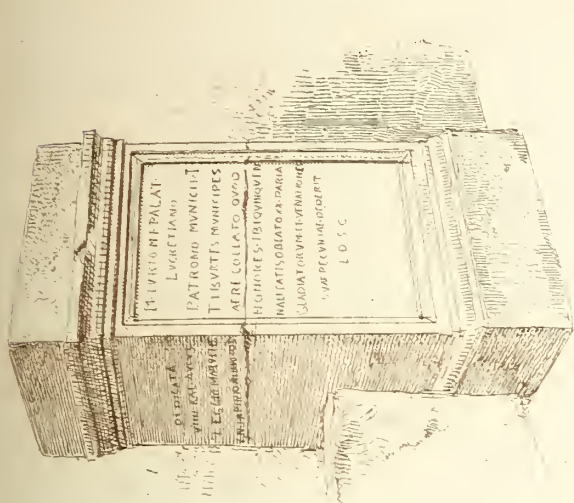 M·TVRIO·M·F·PALAT·
LVCRETIANO
PATRONO MVNICIPI·I
TIBVRTES MVNICIPES
AERE COLLATO QVOD
HONORES·IBI QVINQVEN
NALITATIS OBLATO XX PARIA
GLADIATORVM·ET·VENATIONEM
SVA PECVNIA·DEDERIT
L D S C
DEDICATA
VIIII KAL AVG
L EGGIO